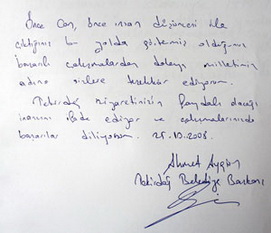 Önce Can, önce insan düşüncesi ile
çıktığınız bu yolda göstermiş olduğunuz
başarılı çalışmalardan dolayı milletimiz
adına sizlere teşekkür ediyorum.
Tekirdağ ziyaretinizin faydalı olacağı
inancımı ifade ediyor ve çalışmalarınızda
başarılar diliyorum. 25.10.2008.
Ahmet Aygün
Tekirdağ Belediye Başkanı